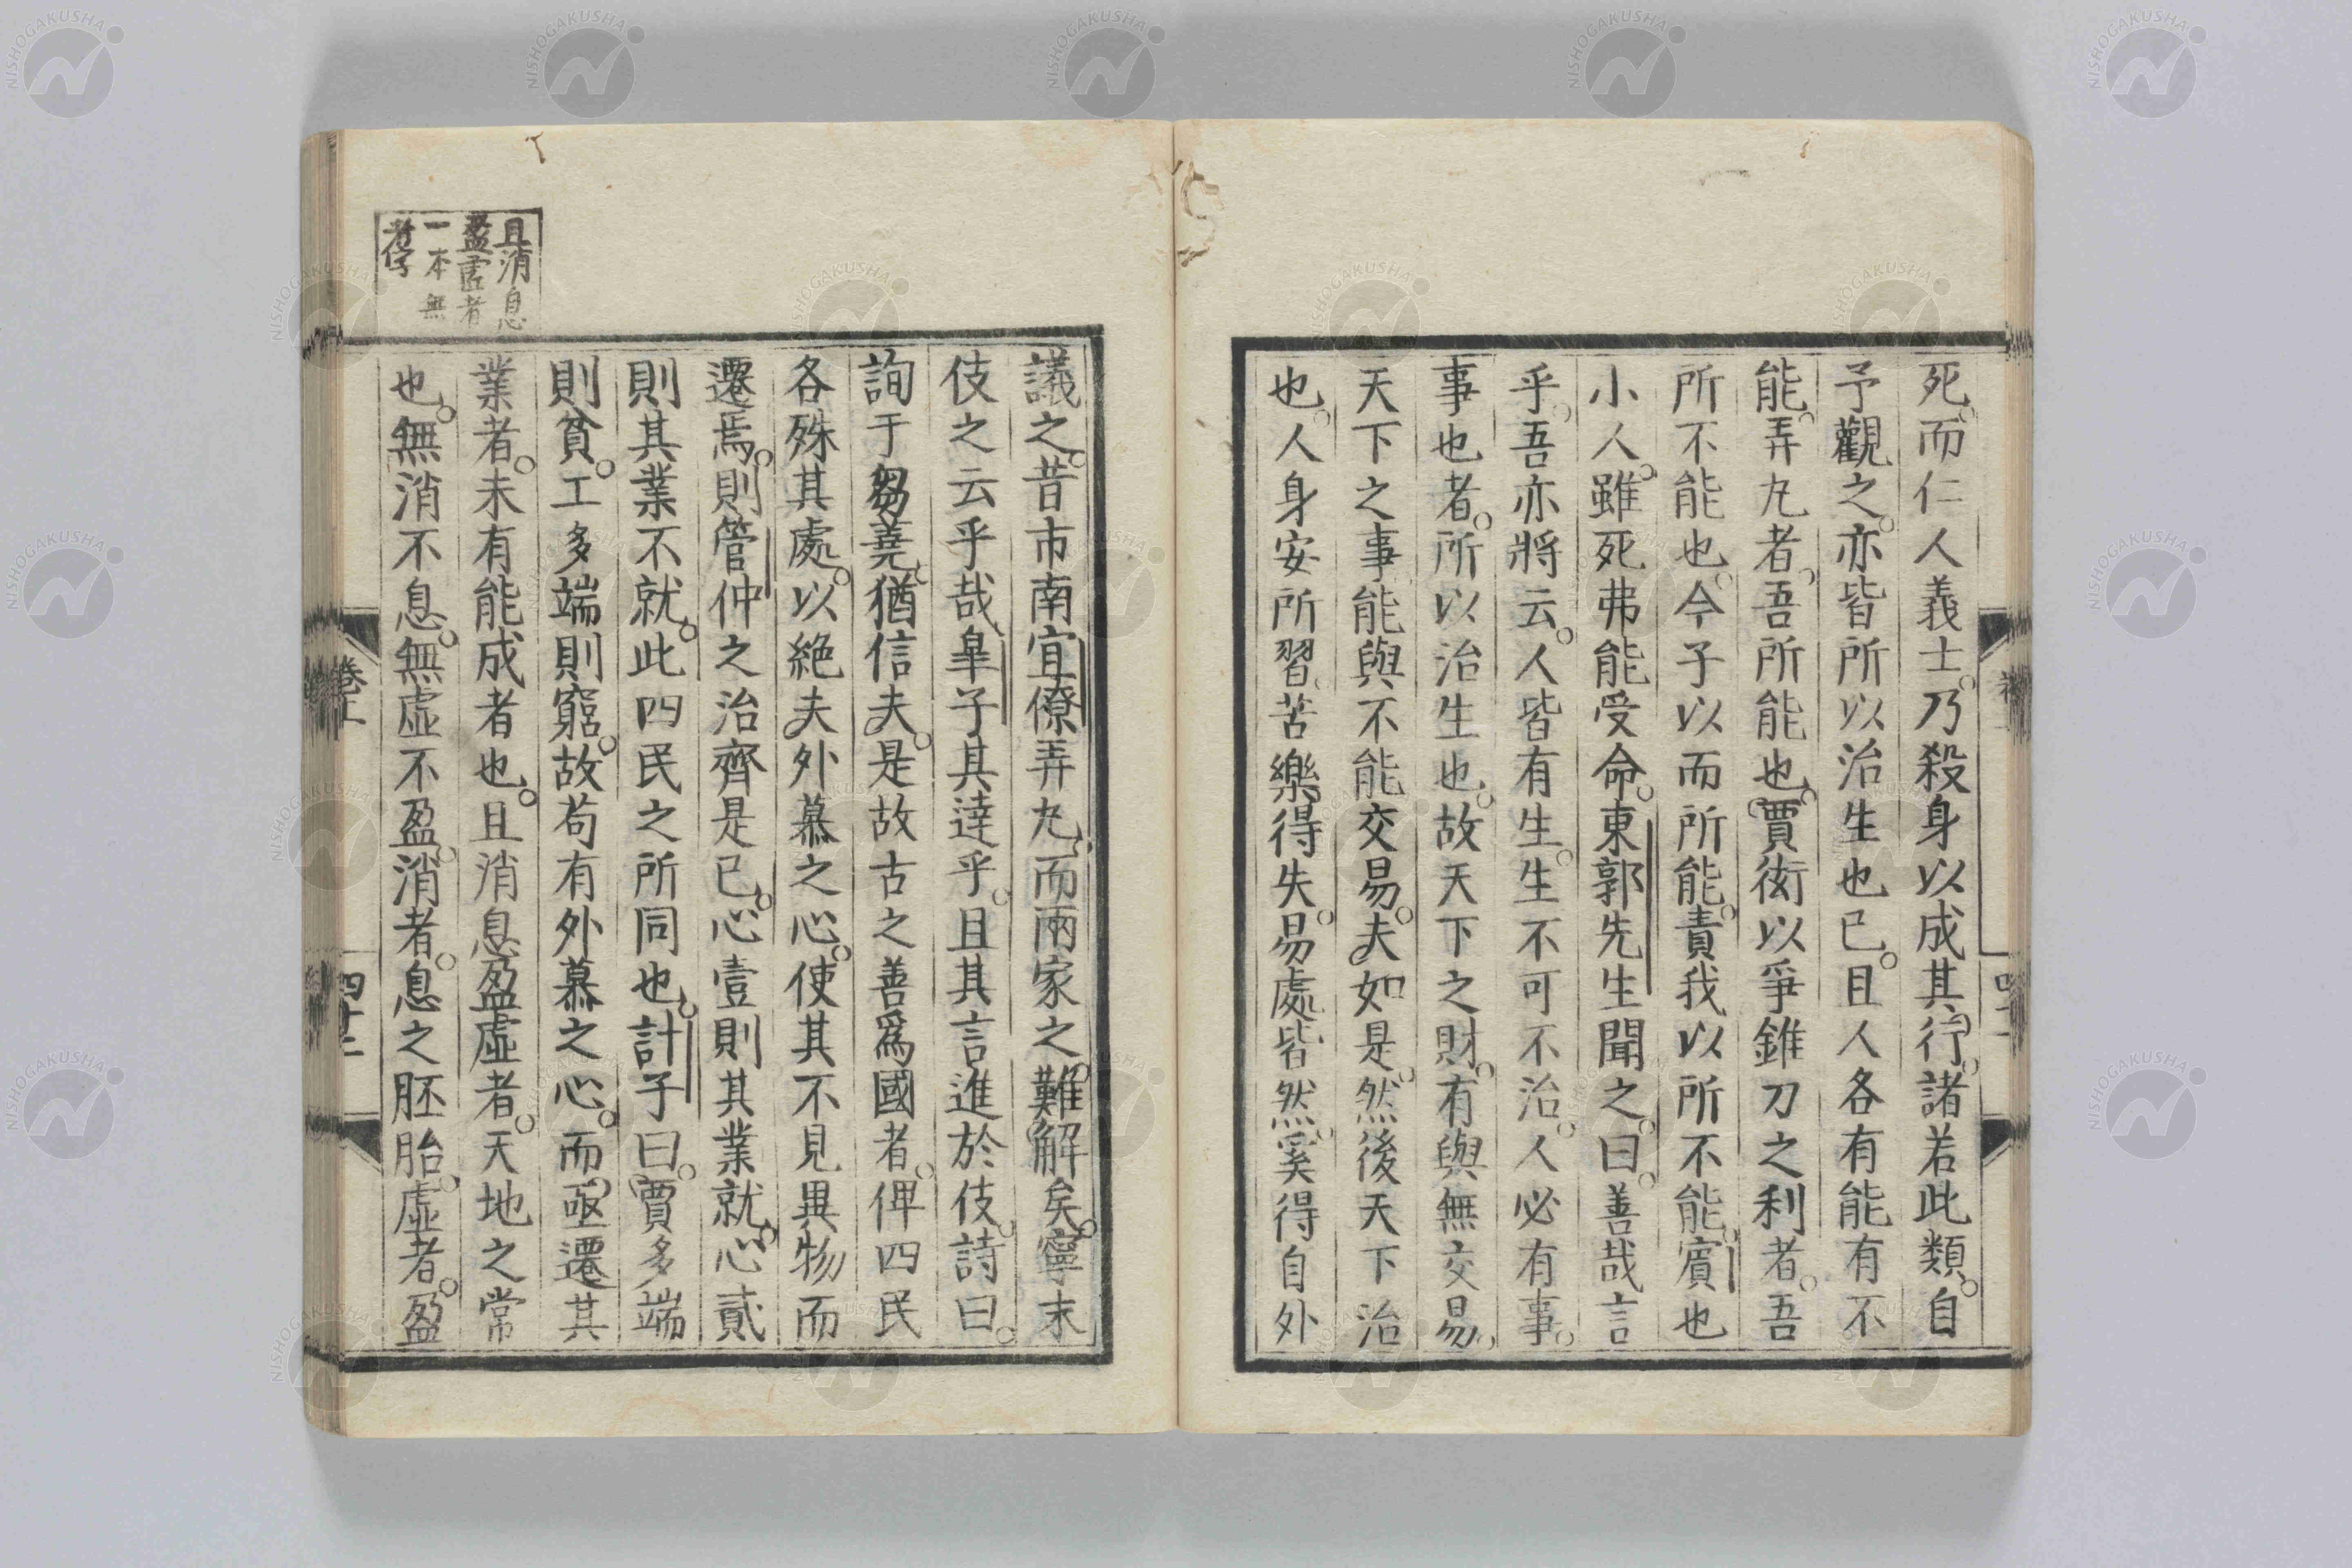 死。而仁人義士。乃殺身以成其行。諸若此類。自
予觀之。亦皆所以治生也已。且人各有能有不
能。弄丸者。吾所能也。賈衒以爭錐刀之利者。吾
所不能也。今子以而所能。責我以所不能。賓也
小人。雖死弗能受命。東郭先生聞之。曰。善哉言
乎。吾亦將云。人皆有生。生不可不治。人必有事。
事也者。所以治生也。故天下之財。有與無交易。
天下之事能與不能交易。夫如是。然後天下治
也。人身安所習。苦樂得失。易處皆然。奚得自外
議之。昔市南宜僚弄丸。而兩家之難解矣。寧末
伎之云乎哉。皐子其達乎。且其言進於伎。詩曰。
詢于芻蕘。猶信夫。是故古之善爲國者。俾四民
各殊其處。以絶夫外慕之心。使其不見異物而
遷焉。則管仲之治齊是已。心壹則其業就。心貳
則其業不就。此四民之所同也。計子曰。賈多端
則貧。工多端則窮。故苟有外慕之心。而亟遷其
業者。未有能成者也。且消息盈虛者。天地之常
也。無消不息。無虛不盈。消者。息之胚胎。虛者。盈
且消息
盈虛者
一本無
者字
卷上
四十二